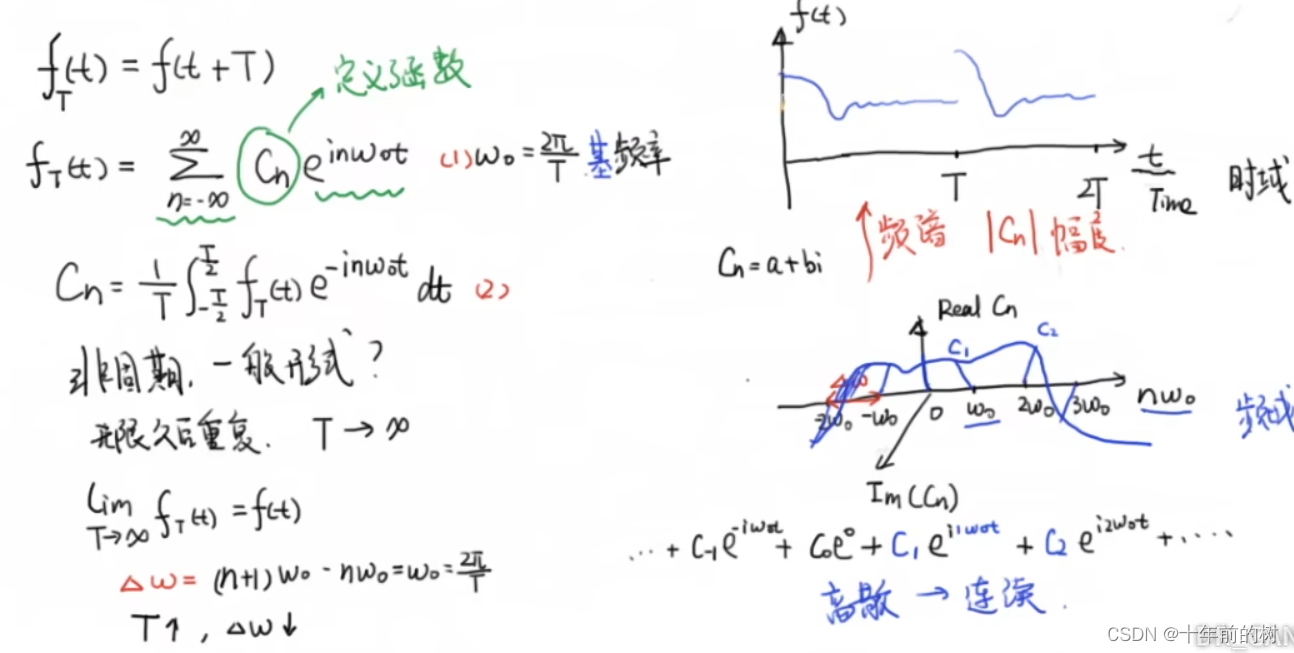 f_T(t) = f(t+T)
定义了函数
f_T(t) = ∑_{n=-∞}^{∞} C_n e^{inω₀t} (1) ω₀ = 2π/T 基频率
C_n = 1/T ∫_{-T/2}^{T/2} f_T(t) e^{-inω₀t} dt (2)
非周期, 一般形式?
无限久后重复. T → ∞
Lim_{T→∞} f_T(t) = f(t)
△ω = (n+1)ω₀ - nω₀ = ω₀ = 2π/T
T↑, △ω↓
f(t)
T 2T t
Time 时域
频谱 |C_n| 幅度.
C_n = a+bi
Real C_n
C₁ C₂
△ω
-2ω₀ -ω₀ 0 ω₀ 2ω₀ 3ω₀ nω₀ 频域
Im(C_n)
... + C₋₁e^{-iω₀t} + C₀e⁰ + C₁e^{i1ω₀t} + C₂e^{i2ω₀t} + ....
离散 → 连续.
CSDN @十年前的树